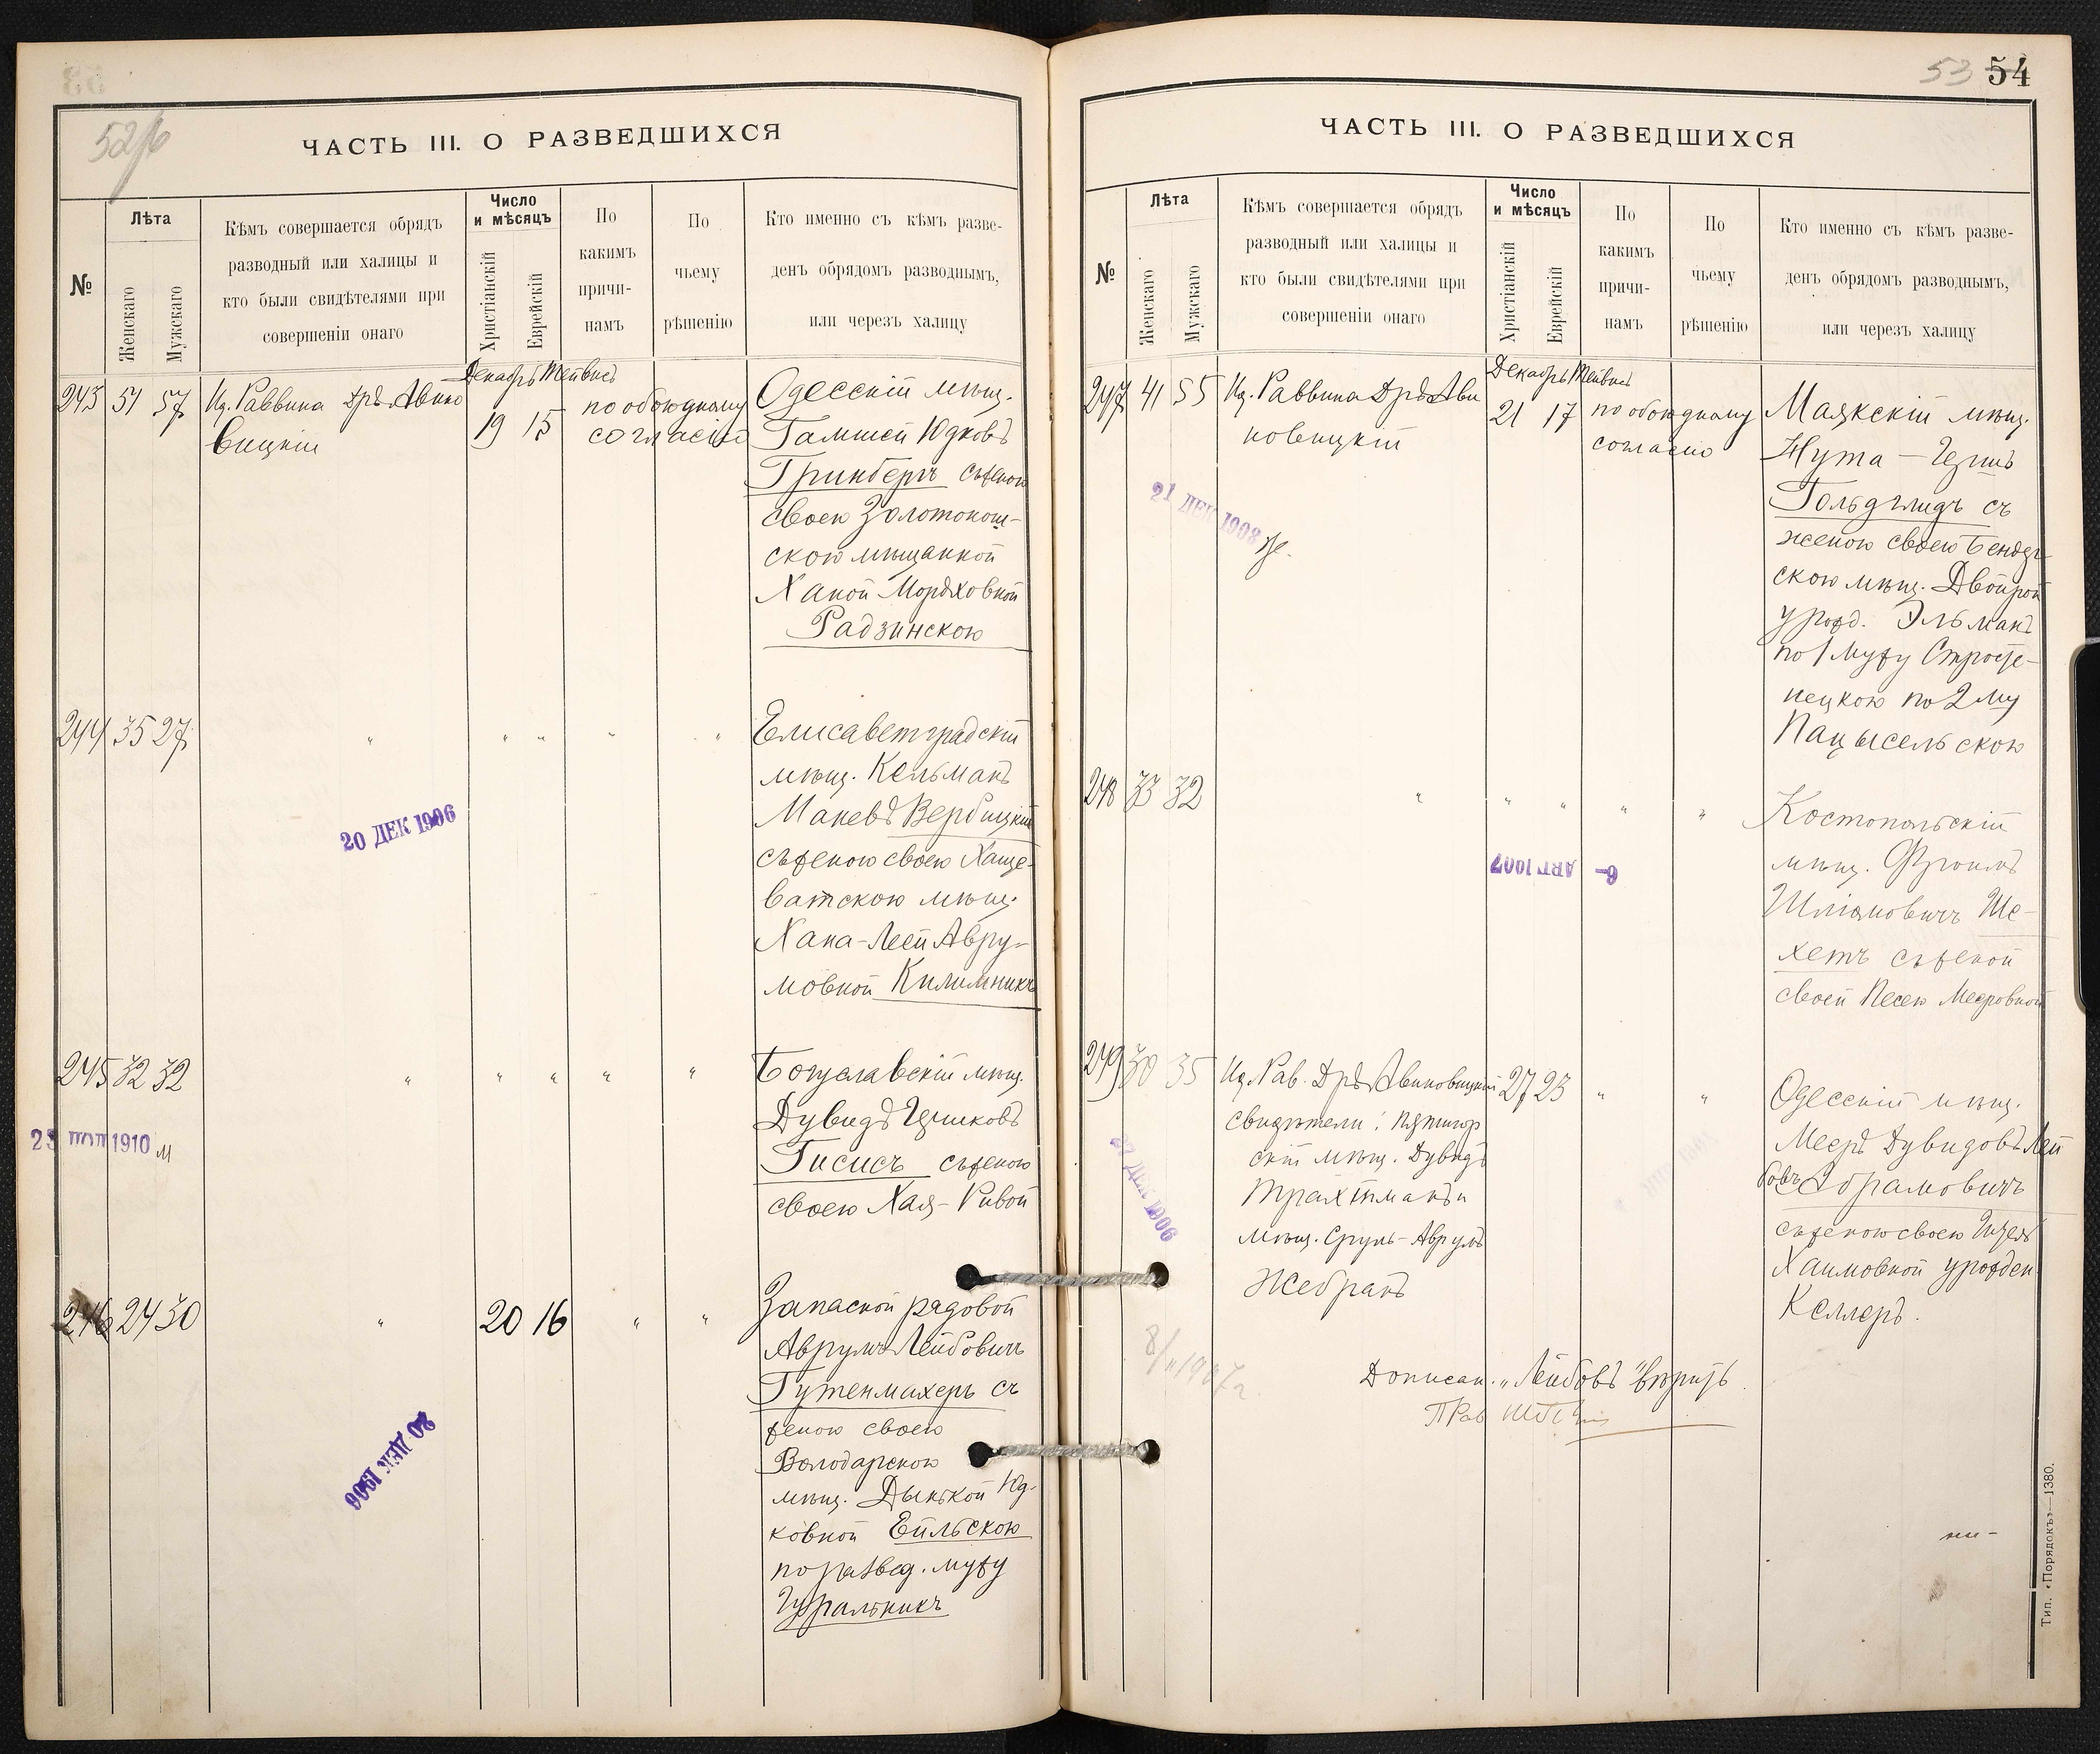 52/б
ЧАСТЬ III. О РАЗВЕДШИХСЯ
№
Лѣта
Женскаго
Мужскаго
Кѣмъ совершается обрядъ
разводный или халицы и
кто были свидѣтелями при
совершеніи онаго
Число
и мѣсяцъ
Христіанскій
Еврейскій
По
какимъ
причи-
намъ
По
чьему
рѣшенію
Кто именно съ кѣмъ разве-
денъ обрядомъ разводнымъ,
или черезъ халицу
Декабрь Тейвись
243 51 57 Ид. Раввина Дръ Авино
вицкій
19 15
по обоюдному
согласію
Одесскій мѣщ.
Юдковъ
Гринбергъ съ женою
своею Золотонош-
скою мѣщанкой
Ханой Мордховной
Радзинскою
244 35 27 " " " " "
Елисаветградскій
мѣщ. Кельманъ
Маневъ Вербицкій
съ женою своею Хаще-
ватскою мѣщ.
Хана-Леей Авру-
мовной Килимникъ
20 ДЕК 1906
245 32 32 " " " " "
Богуславскій мѣщ.
Дувидъ Ицшковъ
Гисисъ съ женою
своею Хая-Ривой
23 1910 м
246 24 30 " 20 16 " "
Запасной рядовой
Аврумъ Лейбовичъ
Гутенмахеръ съ
женою своею
Володарскою
мѣщ. Дынькой Юд-
ковной Ейльскою
по развед. мужу
Гуральникъ
20 ДЕК 1906
53 54
ЧАСТЬ III. О РАЗВЕДШИХСЯ
№
Лѣта
Женскаго
Мужскаго
Кѣмъ совершается обрядъ
разводный или халицы и
кто были свидѣтелями при
совершеніи онаго
Число
и мѣсяцъ
Христіанскій
Еврейскій
По
какимъ
причи-
намъ
По
чьему
рѣшенію
Кто именно съ кѣмъ разве-
денъ обрядомъ разводнымъ,
или черезъ халицу
Декабрь Тейвись
247 41 55 Ид. Раввина Дръ Ави
новицкій
21 17
по обоюдному
согласію
Маякскій мѣщ.
Нута-
съ
женою своею Бендер-
скою мѣщ. Двойрой
урожд. Эльманъ
по 1 мужу
нецкою по 2 му
Пацысельскою
21 ДЕК 1908
248 33 32 " " " " "
Костопольскій
мѣщ. Фроимъ
Ше-
хетъ съ женой
своей Песею Мееровной
6- АВГ 1907
249 30 35 Ид. Рав. Дръ Авиновицкій
свидѣтели: пятигор
скій мѣщ. Дувидъ
Трахтманъ и
мѣщ. Сруль-Аврумъ
Жебракъ
27 23 " "
Одесскій мѣщ.
Мееръ Дувидовъ Лей
бовъ Абрамовичъ
съ женою своею
Хаимовной урожден.
Келлеръ.
27 ДЕК 1906
8/II 1907 г.
Дописан. „Лейбовъ" вѣрить
Тип. «Порядокъ»—1380.